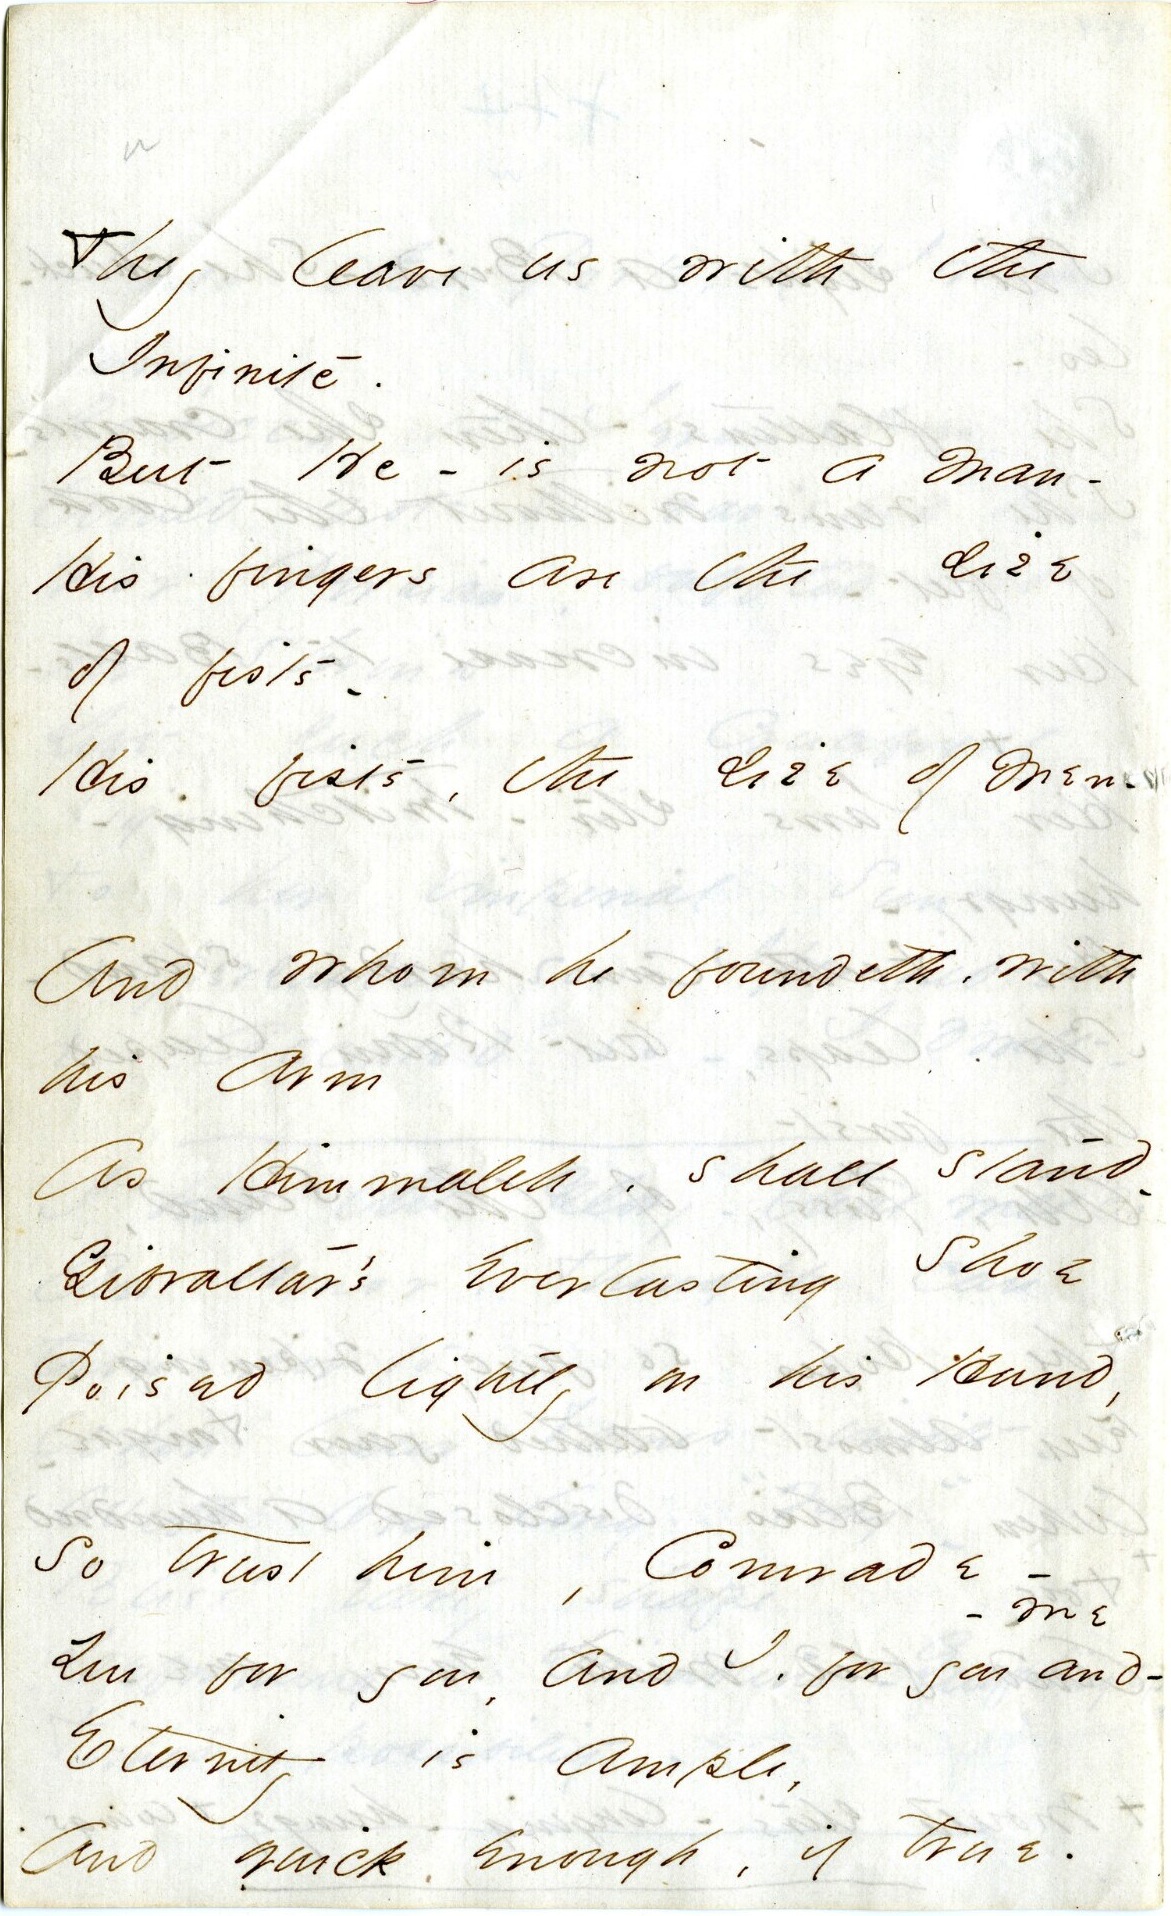 They leave us with the
Infinite.
But He - is not a man -
His fingers are the size
of fists -
His fists, the size of men -
And whom he foundeth, with
his Arm
As Himmaleh, shall stand -
Gibraltar's Everlasting Shoe
Poised lightly on his Hand,
So trust him, Comrade -
- me
You for you, and I, for you and -
Eternity is ample,
And quick enough, if true.